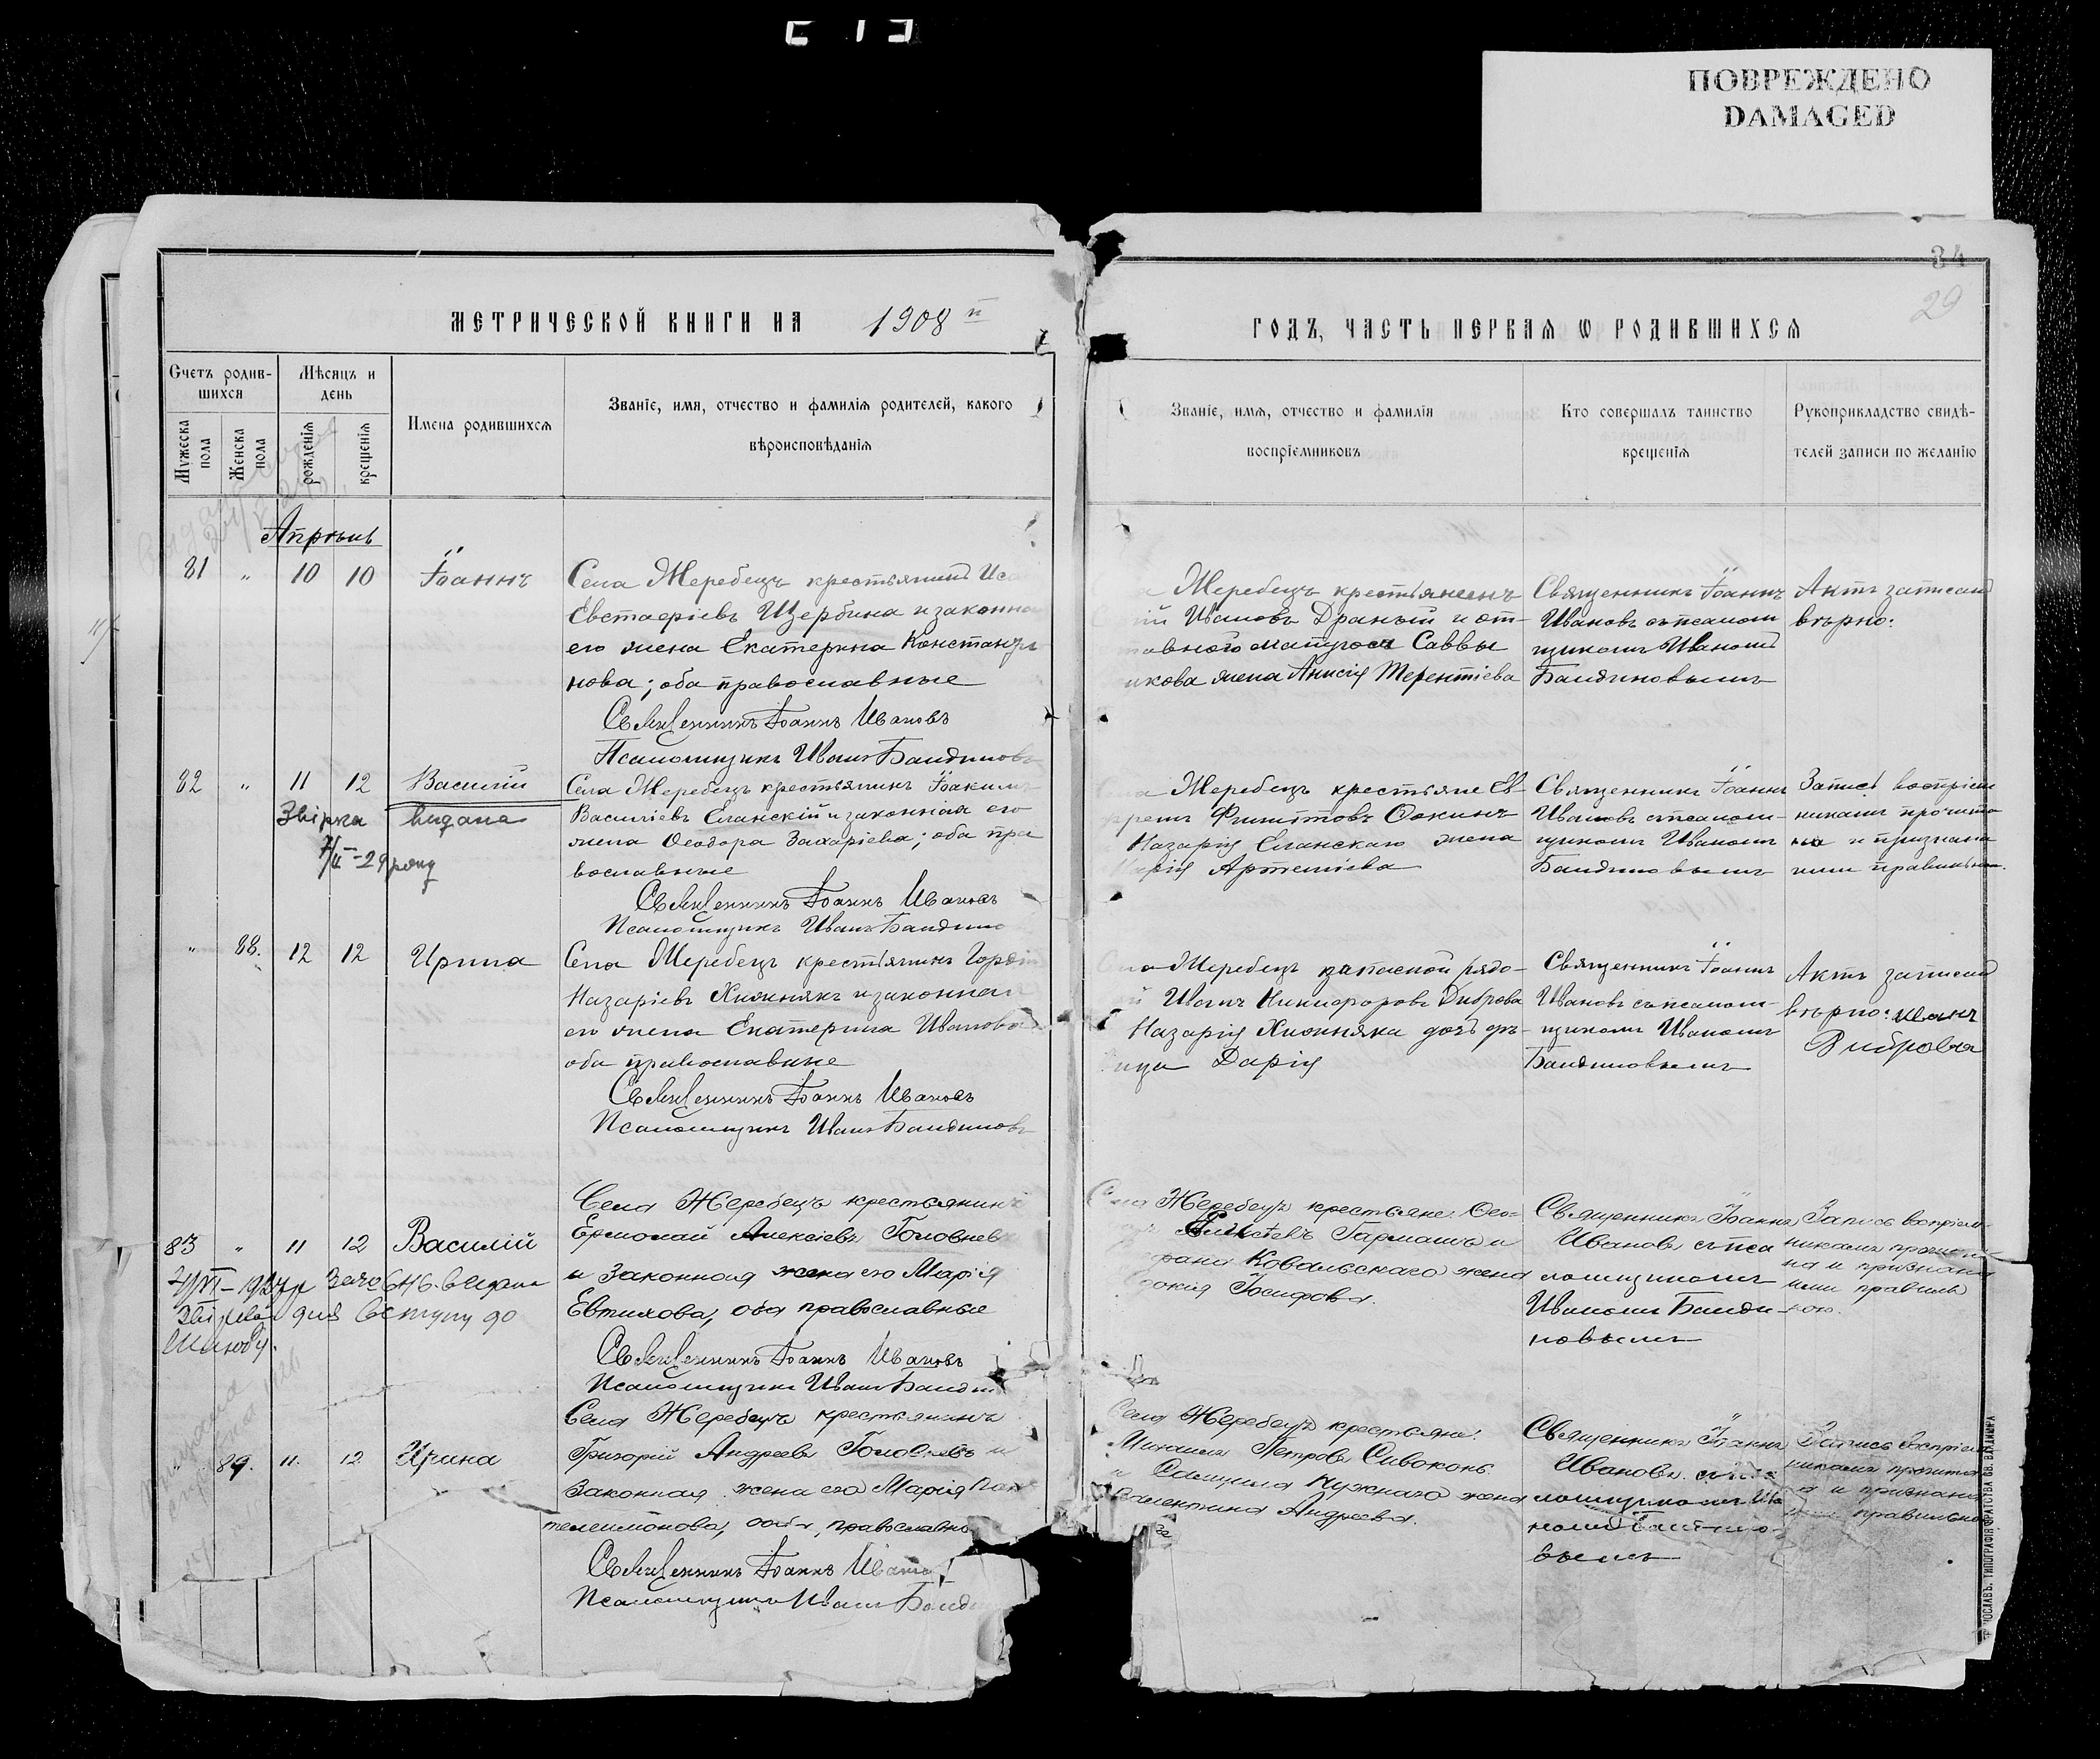 ПОВРЕЖДЕНО
DAMAGED
34
29
МЕТРИЧЕСКОЙ КНИГИ НА 1908 й
ГОДЪ, ЧАСТЬ ПЕРВАЯ Ѡ РОДИВШИХСЯ
Счетъ родив-
шихся
Мужеска пола
Женска пола
Мѣсяцъ и
день
рожденія
крещенія
Имена родившихся
Званіе, имя, отчество и фамилія родителей, какого
вѣроисповѣданія
Званіе, имя, отчество и фамилія
воспріемниковъ
Кто совершалъ таинство
крещенія
Рукоприкладство свидѣ-
телей записи по желанію
Апрѣль
81 " 10 10 Іоаннъ
Села Жеребецъ крестьянинъ
Евстафіевъ Щербина и законная
его жена Екатерина Константи
нова; оба православные
Священникъ Іоаннъ Ивановъ
Псаломщикъ Иванъ Бандиновъ
Жеребецъ крестьянинъ
Ивановъ Драный и от-
тавного матроса Саввы
икова жена Анисія Терентіева
Священникъ Іоаннъ
Ивановъ съ псалом
щикомъ Иваномъ
Бандиновымъ
Актъ записанъ
вѣрно:
82 " 11 12 Василій
Звірка видана
7/II-29 року
Села Жеребецъ крестьянинъ Іоакимъ
Василіевъ Еланскій и законная его
жена Ѳеодора Захаріева; оба пра
вославные
Священникъ Іоаннъ Ивановъ
Псаломщикъ Иванъ Бандино
Жеребецъ крестьяне Ев-
фремъ Филиповъ Сокинъ
Назарія Еланскаго жена
Марія Артеміева
Священникъ Іоаннъ
Ивановъ съ псалом-
щикомъ Иваномъ
Бандиновымъ
Запись воспріем
никамъ прочита
на и признана
ими правильною.
" 88. 12 12 Ирина
Села Жеребецъ крестьянинъ Гордій
Назаріевъ Хижнякъ и законная
его жена Екатерина Иванова
оба православные
Священникъ Іоаннъ Ивановъ
Псаломщикъ Иванъ Бандиновъ
Села Жеребецъ запасной рядо-
й Иванъ Никифоровъ Диброва
Назарія Хижняка дочь дѣ-
вица Дарія
Священникъ Іоаннъ
Ивановъ съ псалом-
щикомъ Иваномъ
Бандиновымъ
Актъ записанъ
вѣрно: Иванъ
Диброва
83 " 11 12 Василій
Села Жеребецъ крестьянинъ
Ермолай Алексіевъ Головневъ
и законная жена его Марія
Евтихова, оба православные
Священникъ Іоаннъ Ивановъ
Псаломщикъ Иванъ Банди
для вступу до
шлюбу.
Села Жеребецъ крестьяне: Ѳео-
Алексѣевъ Гармашъ и
Ковальскаго жена
докія Іосифова.
Священникъ Іоаннъ
Ивановъ съ пса
ломщикомъ
Иваномъ Банди-
новымъ
Запись воспріем-
никамъ прочита
на и признана
ими правиль
ною.
" 89. 11. 12 Ирина
Села Жеребецъ крестьянинъ
Григорій Андреевъ Головневъ и
законная жена его Марія Пан
телеимонова, оба православные
Священникъ Іоаннъ Ивано
Псаломщикъ Иванъ Банди
Села Жеребецъ крестьяне:
Михаилъ Петровъ Сивоконь
и Самуила Нужнаго жена
Валентина Андреева.
Священникъ Іоаннъ
Ивановъ съ пса
ломщикомъ Ива
номъ Бандино-
вымъ
Запись воспріем
никамъ прочита
на и признана
ими правильно